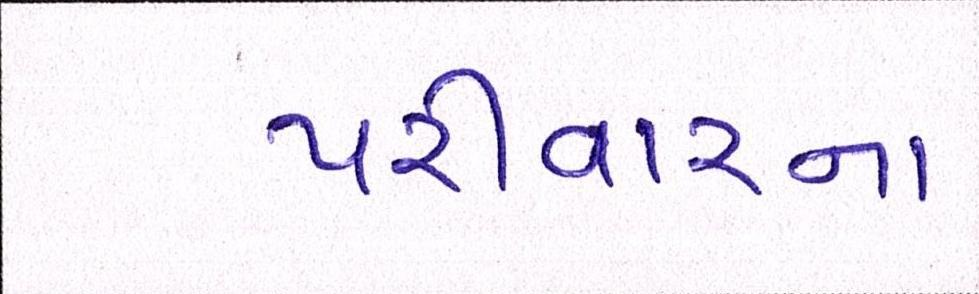 પરીવારના